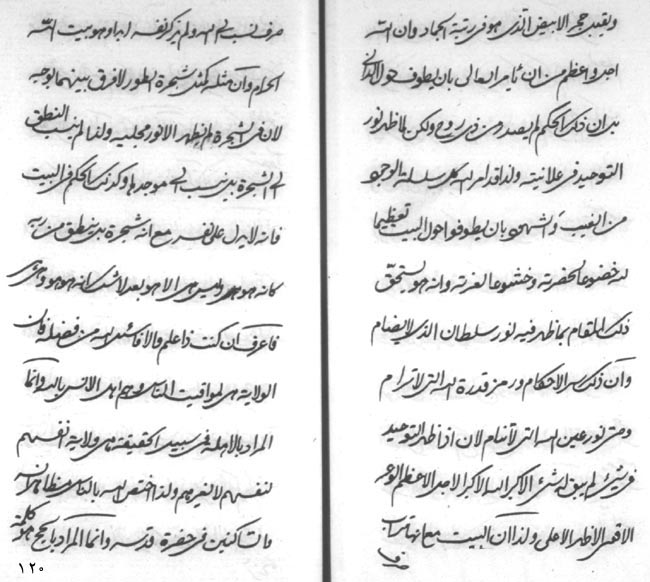 ويقبل حجر الابيض الذي هو في رتبة الجماد وان الله
اجل واعظم من ان يأمر العالي بان يطوف حول الداني
بل ان ذلك الحكم لم يصدر من ذي روح ولكن لما ظهر نور
التوحيد في علانيته ولذا قد امر الله كل سلسلة الوجود
من الغيب والشهود بان يطوفوا حول البيت تعظيما
له خضوعا لحضرته وخشوعا لعزته وانه هو يستحق
ذلك المقام بما ظهر فيه نور سلطان الذي لا يضام
وان ذلك سر الاحكام ورمز قدرة الله التي لا ترام
نور عين الله التي لا تنام لان اذا ظهر التوحيد
في شيء لم يبق له شيء الا كبر الله الاكبر الاجل الاعظم
الاقدس الاظهر الاعلى ولذا ان البيت مع انه تراب
صرف نسب الى الله ولم يذكر نفسه ابدا وهو بيت الله
الحرام وان مثله كمثل شجرة الطور لا فرق بينهما بوجه
لان في الشجرة لم يظهر الا نور مجليه ولذا لم ينسب النطق
الى الشجرة بل نسب الى موجدها وكذلك الحكم في البيت
فانه لا يدل على نفسه مع انه شجرة بل ينطق من ربه
كانه هو هي وليس هي الا هو بعد لا شك انه هو هو وهي هي
فاعرف ان كنت ذا علم والا فاسئل الله من فضله فان
الولاية هي لمواقيت الناس وهم اهل الانس بالله وانما
المراد بالاهلة في سبيل الحقيقة هي ولاية انفسهم
لنفسهم لا لغيرهم ولذا اختص الله بالناس مظاهر انسه
والساكنين في حضرة قدسه وانما المراد بالحج هو كلمة
١٢٠